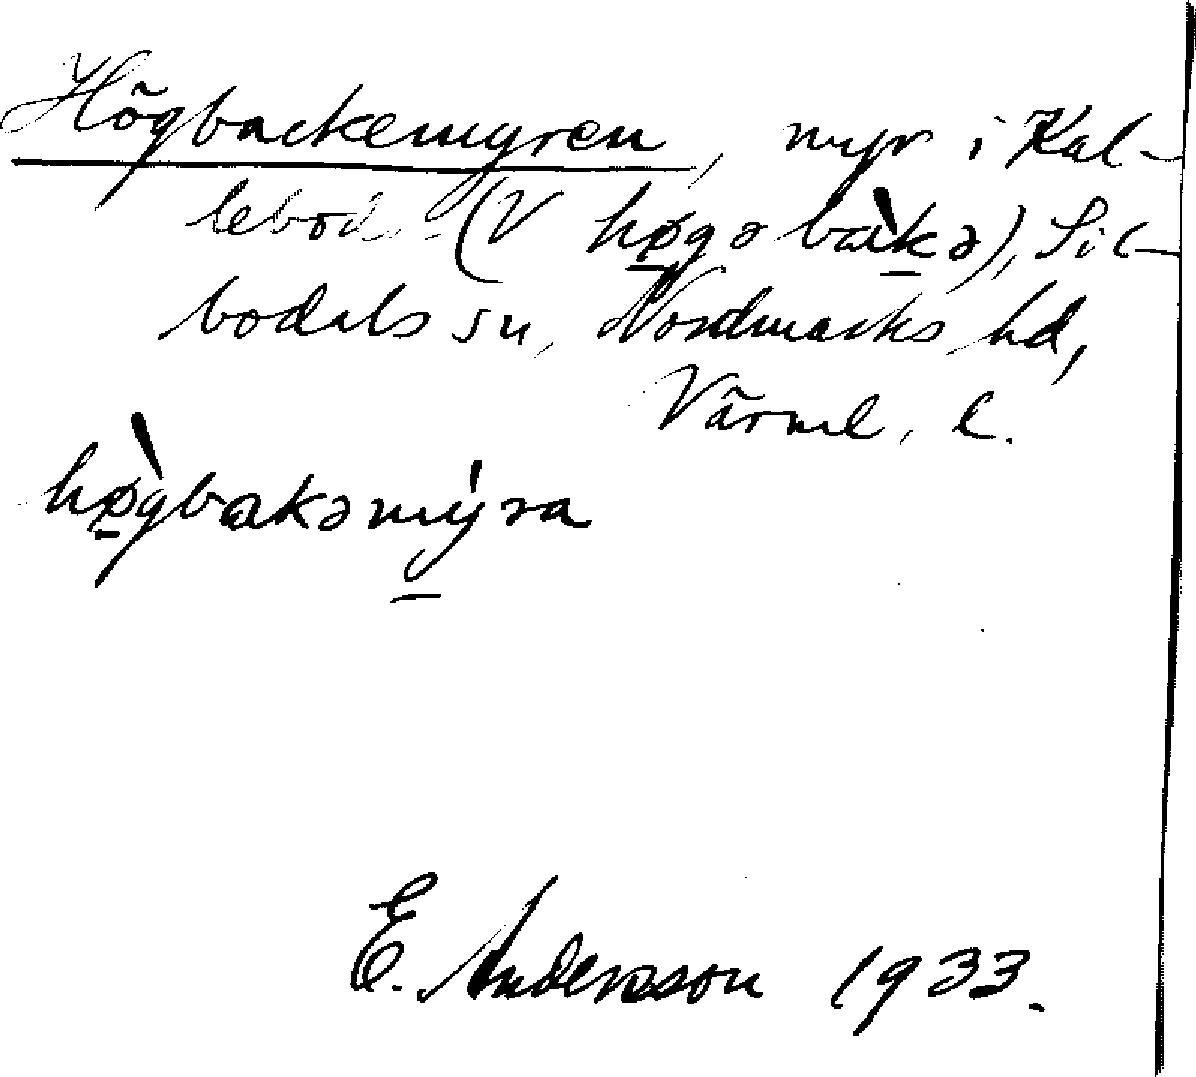 Högbackemyren, myr i Kal-
lebod (V høgə bàkə), Sil-
bodals sn, Nordmarks hd,
Värml. l.
hø̀gbakəmýra
E. Andersson 1933.